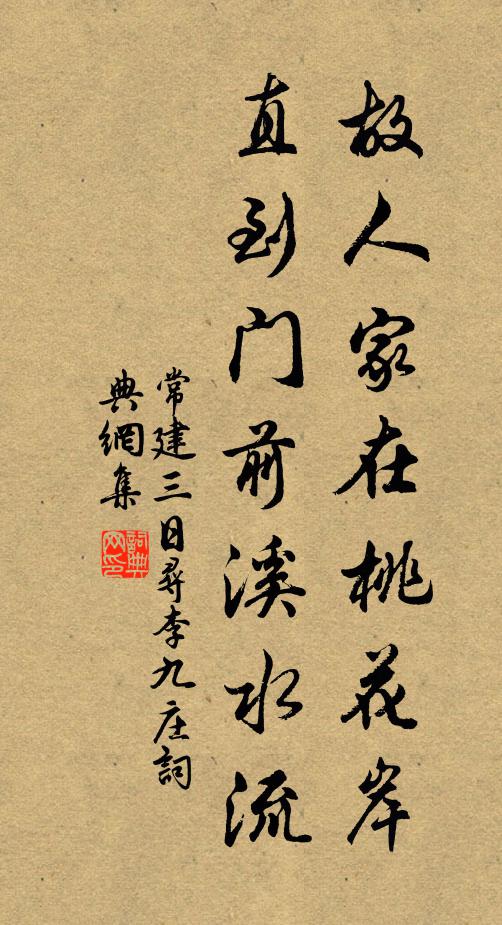 故人家在桃花岸
直到门前溪水流
常建三日尋李九庄詞
典網集
詞典网印